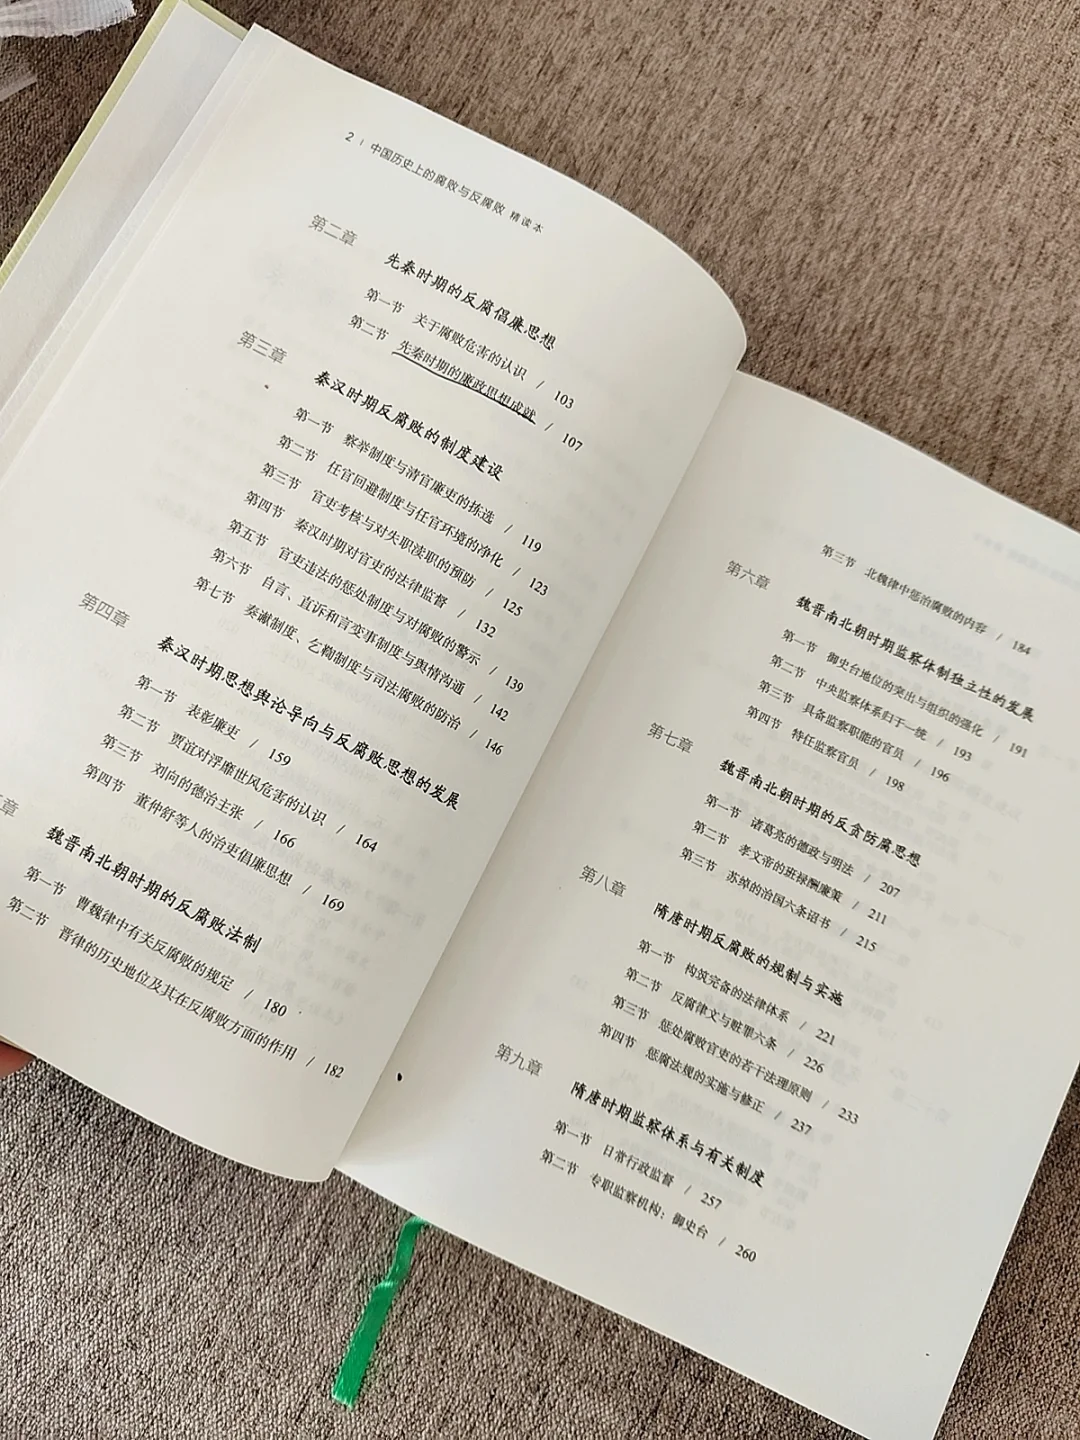 2 | 中国历史上的腐败与反腐败 精读本
第二章
先秦时期的反腐倡廉思想
第一节 关于腐败危害的认识 / 103
第二节 先秦时期的廉政思想成就 / 107
第三章
秦汉时期反腐败的制度建设
第一节 察举制度与清官廉吏的拣选 / 119
第二节 任官回避制度与任官环境的净化 / 123
第三节 官吏考核与对失职渎职的预防 / 125
第四节 秦汉时期对官吏的法律监督 / 132
第五节 官吏违法的惩处制度与对腐败的警示 / 139
第六节 自言、直诉和言变事制度与舆情沟通 / 142
第七节 奏谳制度、乞鞫制度与司法腐败的防治 / 146
第四章
秦汉时期思想舆论导向与反腐败思想的发展
第一节 表彰廉吏 / 159
第二节 贾谊对浮靡世风危害的认识 / 164
第三节 刘向的德治主张 / 166
第四节 董仲舒等人的治吏倡廉思想 / 169
章
魏晋南北朝时期的反腐败法制
第一节 曹魏律中有关反腐败的规定 / 180
第二节 晋律的历史地位及其在反腐败方面的作用 / 182
第三节 北魏律中惩治腐败的内容 / 184
第六章
魏晋南北朝时期监察体制独立性的发展
第一节 御史台地位的突出与组织的强化 / 191
第二节 中央监察体系归于一统 / 193
第三节 具备监察职能的官员 / 196
第四节 特任监察官员 / 198
第七章
魏晋南北朝时期的反贪防腐思想
第一节 诸葛亮的德政与明法 / 207
第二节 孝文帝的班禄酬廉策 / 211
第三节 苏绰的治国六条诏书 / 215
第八章
隋唐时期反腐败的规制与实施
第一节 构筑完备的法律体系 / 221
第二节 反腐律文与赃罪六条 / 226
第三节 惩处腐败官吏的若干法理原则 / 233
第四节 惩腐法规的实施与修正 / 237
第九章
隋唐时期监察体系与有关制度
第一节 日常行政监督 / 257
第二节 专职监察机构：御史台 / 260